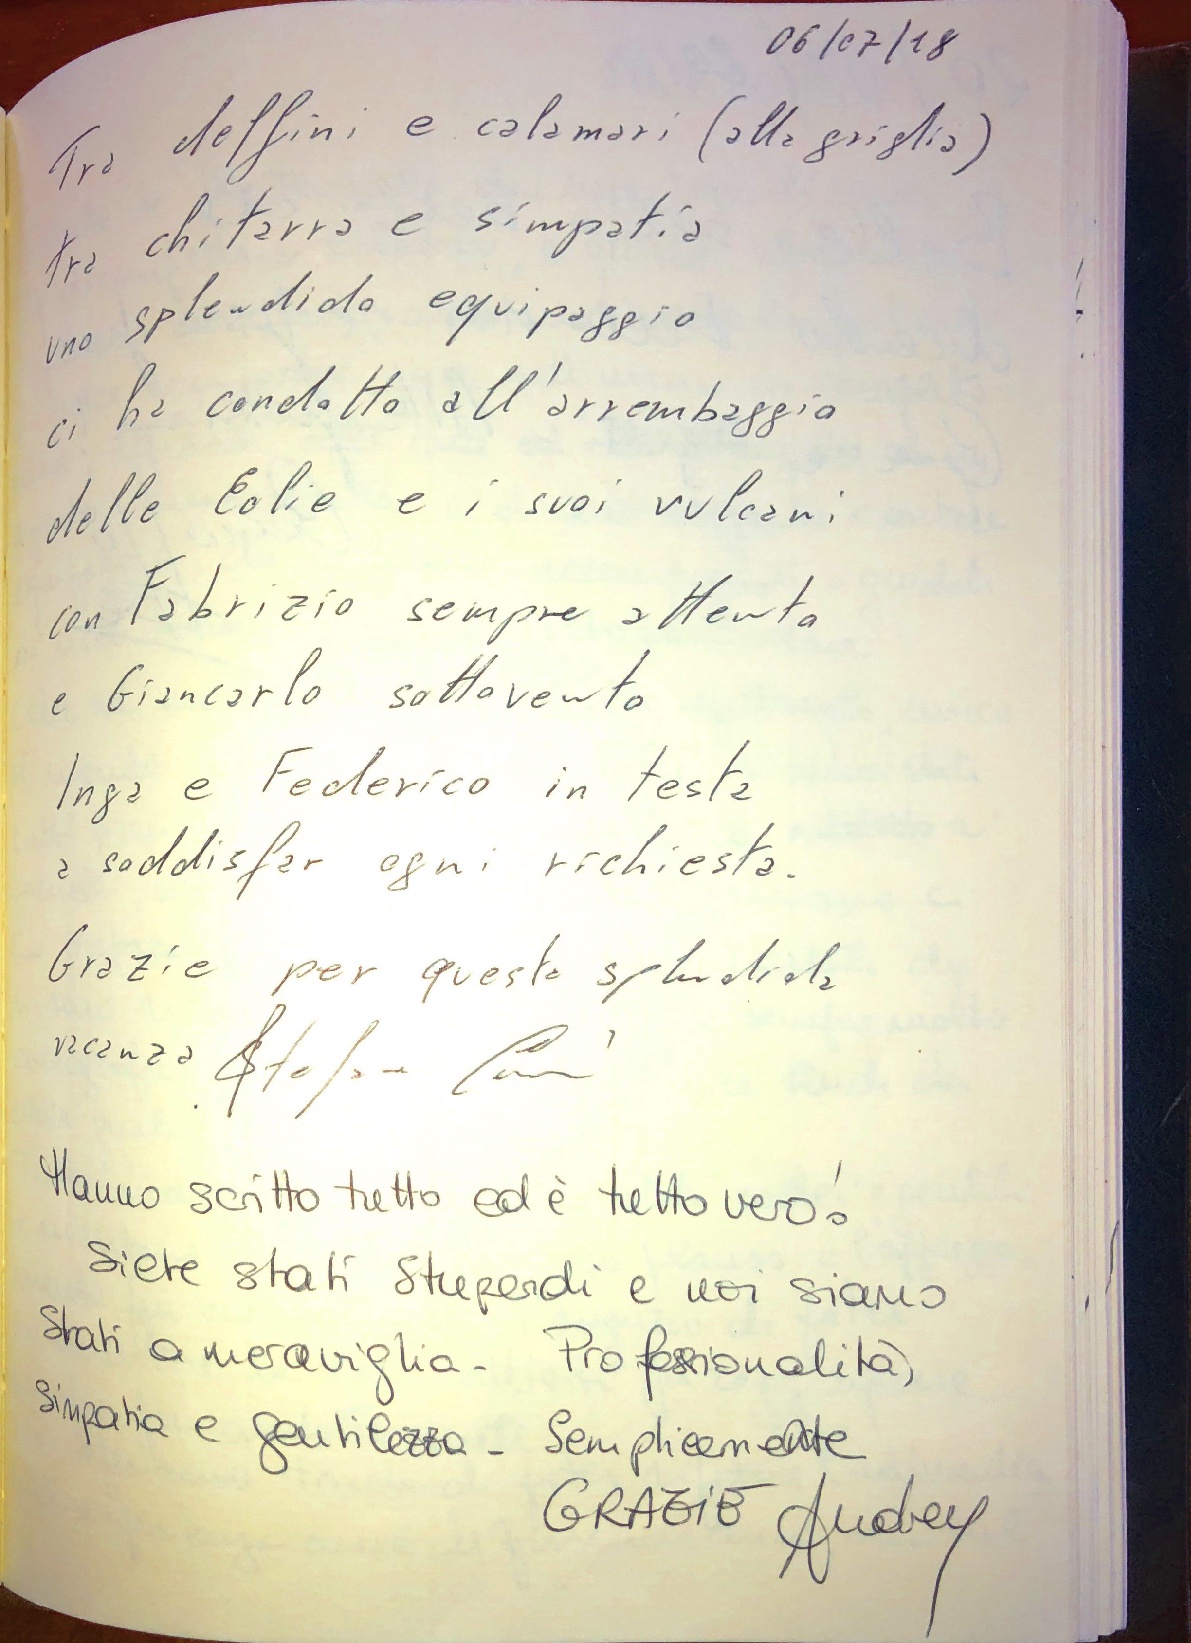 06/07/18
Tra delfini e calamari (alla griglia)
tra chitarra e simpatia
uno splendido equipaggio
ci ha condotto all'arrembaggio
delle Eolie e i suoi vulcani
con Fabrizio sempre attento
e Giancarlo sottovento
Inga e Federico in testa
a soddisfar ogni richiesta.
Grazie per questa splendida
vacanza
Hanno scritto tutto ed è tutto vero!
Siete stati stupendi e noi siamo
stati a meraviglia - Professionalità,
simpatia e gentilezza - Semplicemente
GRAZIE Audrey